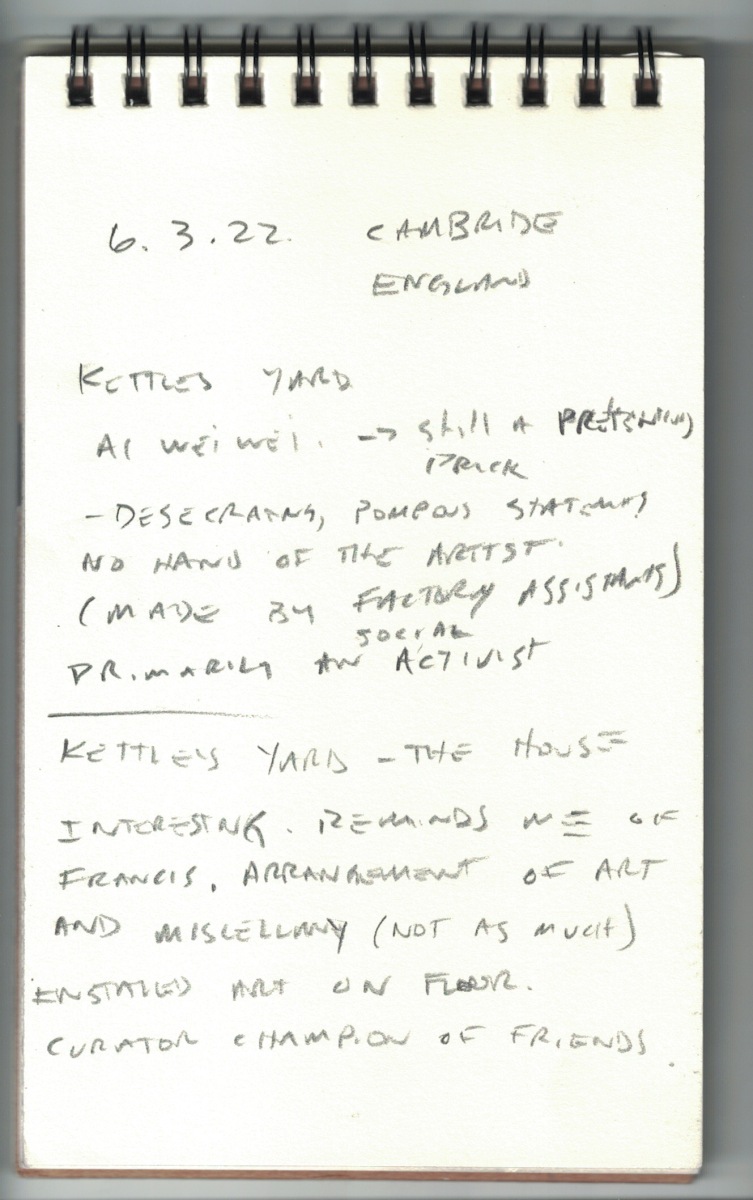 6.3.22. CAMBRIDE
ENGLAND
KETTLES YARD
AI WEIWEI. → Still A
PRICK
- DESECRATNG, POMPOUS
NO HAND OF THE ARTIST.
(MADE BY FACTORY ASSISTANTS)
SOCIAL
PRIMARILY AN ACTIVIST
KETTLE'S YARD - THE HOUSE
INTERESTNG. REMINDS ME OF
FRANCIS. ARRANGEMENT OF ART
AND MISCELLANY (NOT AS MUCH)
ENSTALLED ART ON FLOOR.
CURATOR CHAMPION OF FRIENDS.